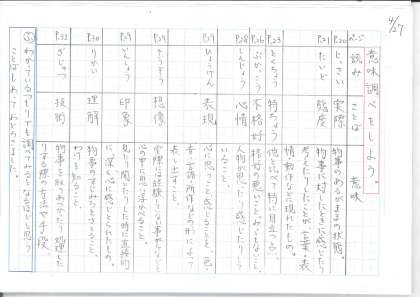 4/27
意味調べをしよう。
P.ページ 読み ことば 意味
P.20 じっさい 実際 物事のあるがままの状態。
P.21 たいど 態度 物事に対したときに感じたり
考えたりしたことが、言葉・表
情・動作などに現れたもの。
とくちょう 特ちょう 他と比べて特に目立つ点。
P.26 ぶかっこう 不格好 格好が悪いこと。みっともないこと。
P.28 しんじょう 心情 人物が思ったり感じたりして
いること。
P.29 ひょうげん 表現 心に思うこと、感じることを、色・
音・言語・所作などの形によって
表し出すこと。
P.29 そうぞう 想像 実際は経験していない事がらなどを
心の中に思いうかべること。
P.29 いんしょう 印象 見たり聞いたりした時に直接的
に深く心に感じとられたもの。
P.30 りかい 理解 物事のすじみちをさとること。
わけを知ること。
P.32 ぎじゅつ 技術 物事を取りあつかったり処理した
りする際の方法や手段。
わかっているつもりでも調べてみるとなるほどと思う
ことばもあってよかったです。